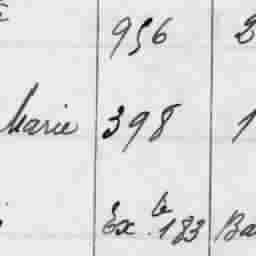 956 2
Marie 398 1
Ex. te 183 Ba